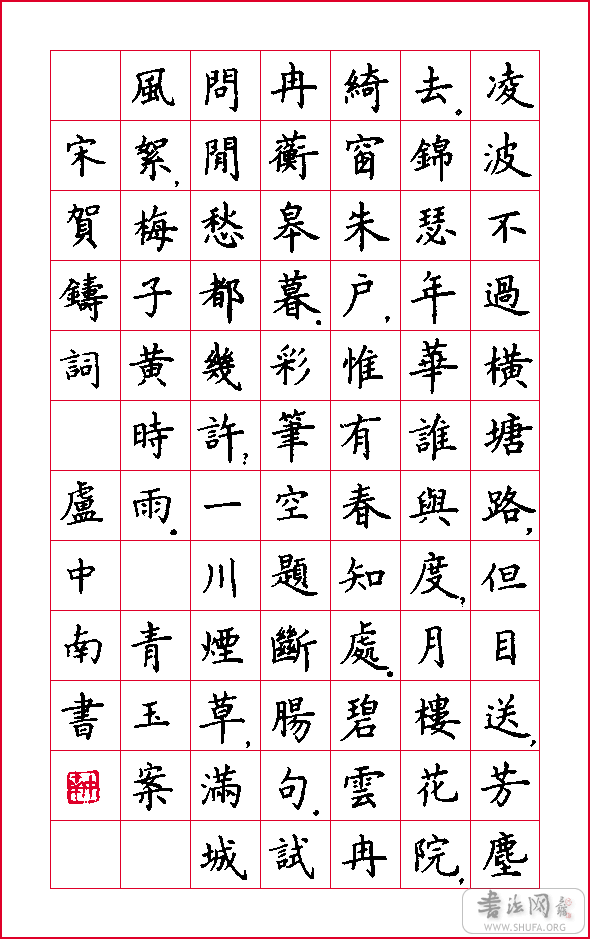 凌波不過橫塘路,但目送,芳塵
去。錦瑟年華誰與度,月樓花院,
綺窗朱户,惟有春知處。碧雲冉
冉蘅皋暮。彩筆空題斷腸句。試
問閒愁都幾許?一川煙草,滿城
風絮,梅子黄時雨。 青玉案
宋賀鑄詞 盧中南書
書法网
WWW.SHUFA.ORG